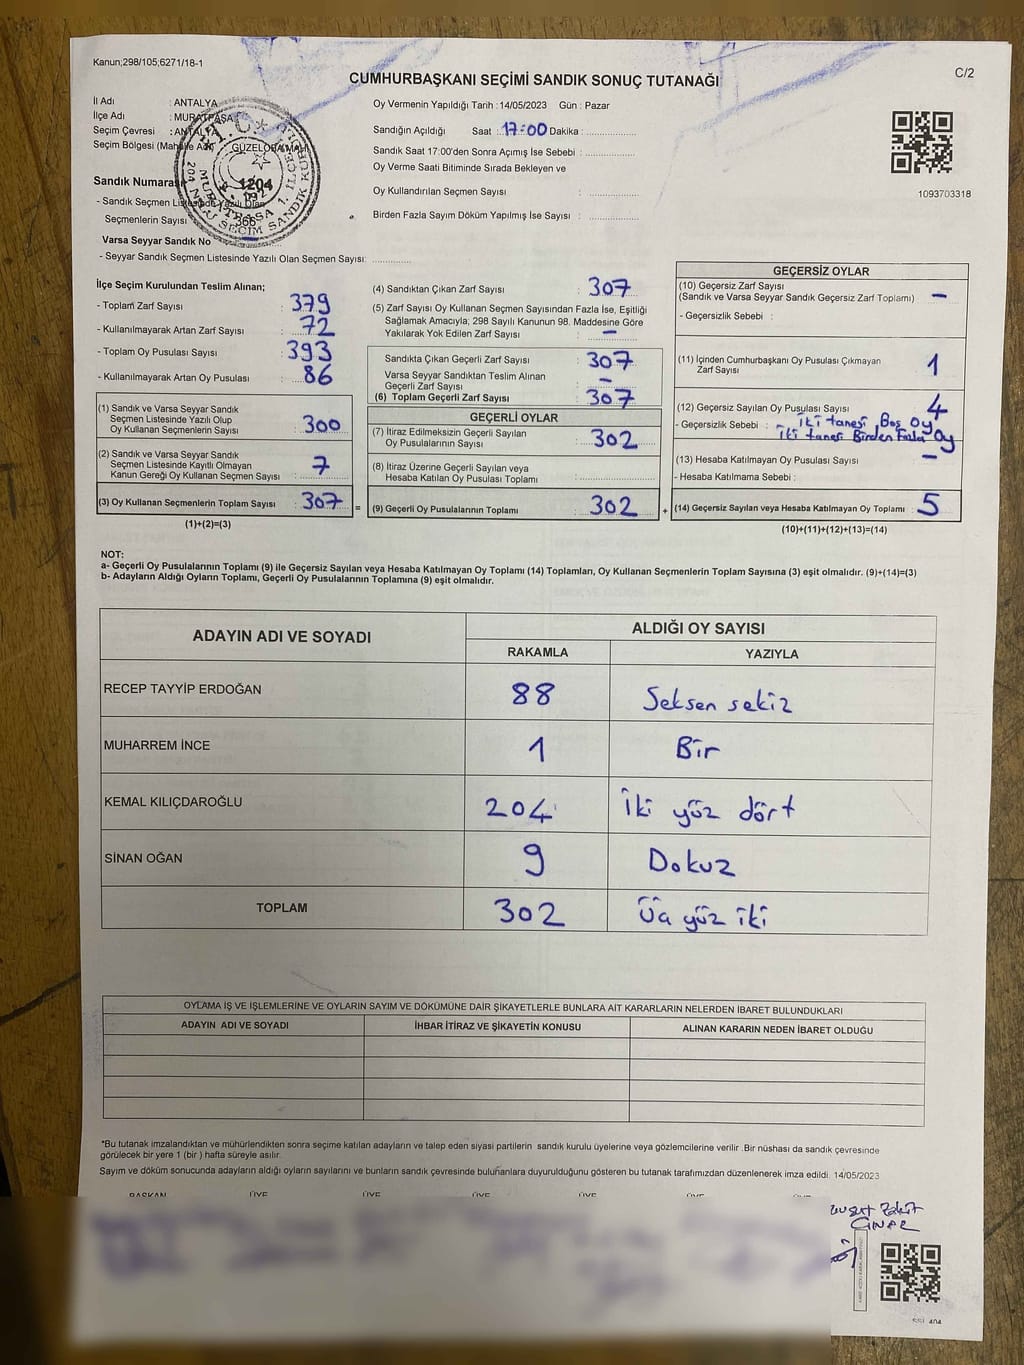 Kanun;298/105;6271/18-1
C/2
CUMHURBAŞKANI SEÇİMİ SANDIK SONUÇ TUTANAĞI
İl Adı : ANTALYA
İlçe Adı : MURATPAŞA
Seçim Çevresi : ANTALYA
Seçim Bölgesi
Sandık Numarası 1204
- Sandık Seçmen Listesinde Yazılı Olan
Seçmenlerin Sayısı 366
Varsa Seyyar Sandık No
- Seyyar Sandık Seçmen Listesinde Yazılı Olan Seçmen Sayısı: ..............
Oy Vermenin Yapıldığı Tarih : 14/05/2023 Gün : Pazar
Sandığın Açıldığı Saat : 17:00 Dakika : ..............
Sandık Saat 17:00'den Sonra Açımış İse Sebebi : ..............
Oy Verme Saati Bitiminde Sırada Bekleyen ve
Oy Kullandırılan Seçmen Sayısı : ..............
Birden Fazla Sayım Döküm Yapılmış İse Sayısı : ..............
1093703318
İlçe Seçim Kurulundan Teslim Alınan;
- Toplam Zarf Sayısı : 379
- Kullanılmayarak Artan Zarf Sayısı : 72
- Toplam Oy Pusulası Sayısı : 393
- Kullanılmayarak Artan Oy Pusulası : 86
(1) Sandık ve Varsa Seyyar Sandık
Seçmen Listesinde Yazılı Olup
Oy Kullanan Seçmenlerin Sayısı : 300
(2) Sandık ve Varsa Seyyar Sandık
Seçmen Listesinde Kayıtlı Olmayan
Kanun Gereği Oy Kullanan Seçmen Sayısı : 7
(3) Oy Kullanan Seçmenlerin Toplam Sayısı : 307 =
(1)+(2)=(3)
(4) Sandıktan Çıkan Zarf Sayısı : 307
(5) Zarf Sayısı Oy Kullanan Seçmen Sayısından Fazla İse, Eşitliği
Sağlamak Amacıyla, 298 Sayılı Kanunun 98. Maddesine Göre
Yakılarak Yok Edilen Zarf Sayısı : –
Sandıkta Çıkan Geçerli Zarf Sayısı : 307
Varsa Seyyar Sandıktan Teslim Alınan
Geçerli Zarf Sayısı : –
(6) Toplam Geçerli Zarf Sayısı : 307
GEÇERLİ OYLAR
(7) İtiraz Edilmeksizin Geçerli Sayılan
Oy Pusulalarının Sayısı : 302
(8) İtiraz Üzerine Geçerli Sayılan veya
Hesaba Katılan Oy Pusulası Toplamı : ..............
(9) Geçerli Oy Pusulalarının Toplamı : 302 +
GEÇERSİZ OYLAR
(10) Geçersiz Zarf Sayısı
(Sandık ve Varsa Seyyar Sandık Geçersiz Zarf Toplamı) : –
- Geçersizlik Sebebi :
(11) İçinden Cumhurbaşkanı Oy Pusulası Çıkmayan
Zarf Sayısı : 1
(12) Geçersiz Sayılan Oy Pusulası Sayısı : 4
- Geçersizlik Sebebi : İki tanesi Boş oy
iki tanesi Birden Fazla Oy
(13) Hesaba Katılmayan Oy Pusulası Sayısı : –
- Hesaba Katılmama Sebebi :
(14) Geçersiz Sayılan veya Hesaba Katılmayan Oy Toplamı : 5
(10)+(11)+(12)+(13)=(14)
NOT:
a- Geçerli Oy Pusulalarının Toplamı (9) ile Geçersiz Sayılan veya Hesaba Katılmayan Oy Toplamı (14) Toplamları, Oy Kullanan Seçmenlerin Toplam Sayısına (3) eşit olmalıdır. (9)+(14)=(3)
b- Adayların Aldığı Oyların Toplamı, Geçerli Oy Pusulalarının Toplamına (9) eşit olmalıdır.
ADAYIN ADI VE SOYADI ALDIĞI OY SAYISI
RAKAMLA YAZIYLA
RECEP TAYYİP ERDOĞAN 88 Seksen sekiz
MUHARREM İNCE 1 Bir
KEMAL KILIÇDAROĞLU 204 İki yüz dört
SİNAN OĞAN 9 Dokuz
TOPLAM 302 Üç yüz iki
OYLAMA İŞ VE İŞLEMLERİNE VE OYLARIN SAYIM VE DÖKÜMÜNE DAİR ŞİKAYETLERLE BUNLARA AİT KARARLARIN NELERDEN İBARET BULUNDUKLARI
ADAYIN ADI VE SOYADI İHBAR İTİRAZ VE ŞİKAYETİN KONUSU ALINAN KARARIN NEDEN İBARET OLDUĞU
*Bu tutanak imzalandıktan ve mühürlendikten sonra seçime katılan adayların ve talep eden siyasi partilerin sandık kurulu üyelerine veya gözlemcilerine verilir. Bir nüshası da sandık çevresinde
görülecek bir yere 1 (bir ) hafta süreyle asılır.
Sayım ve döküm sonucunda adayların aldığı oyların sayılarını ve bunların sandık çevresinde bulunanlara duyurulduğunu gösteren bu tutanak tarafımızdan düzenlenerek imza edildi. 14/05/2023
BAŞKAN ÜYE ÜYE ÜYE ÜYE ÜYE ÜYE
ÇINAR